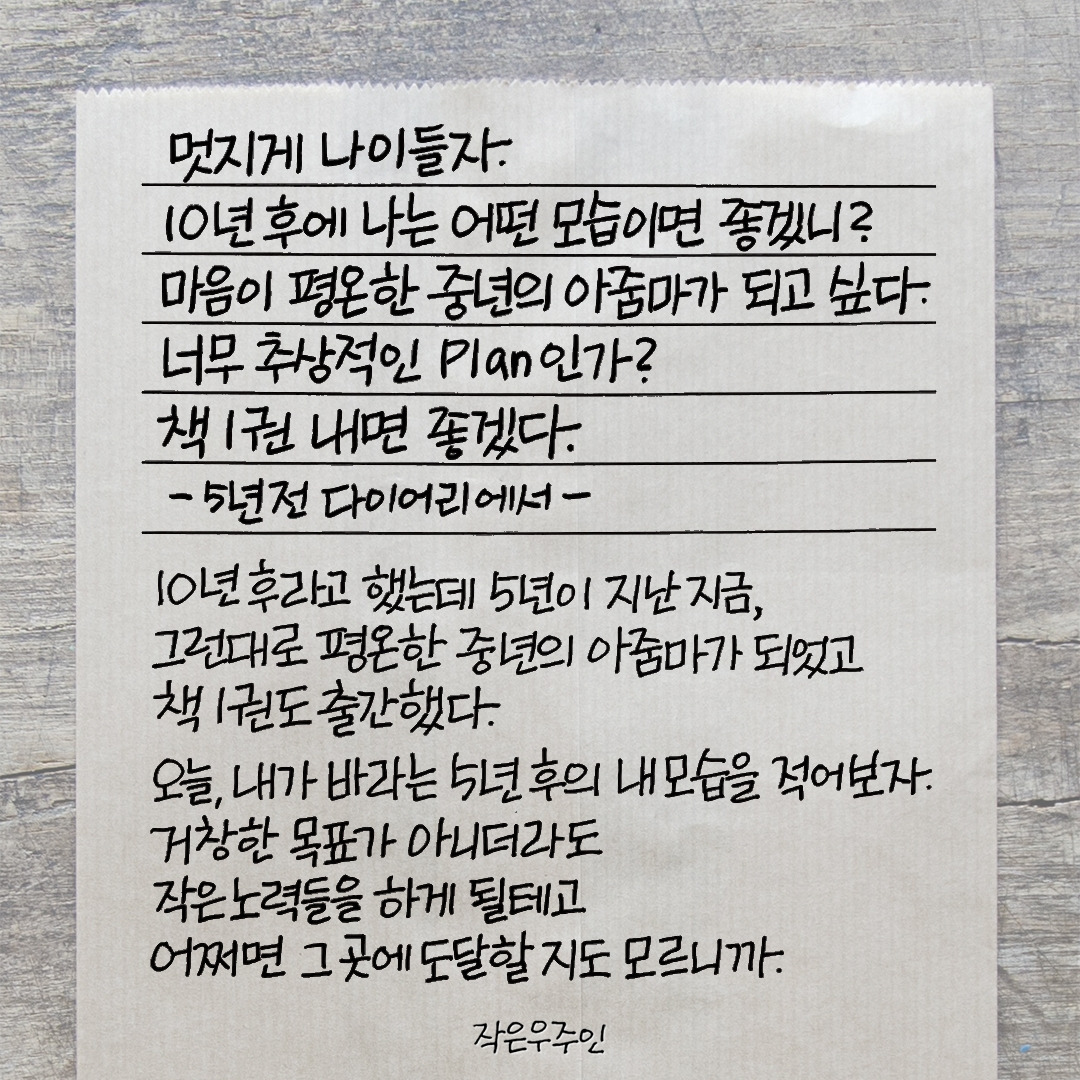 멋지게 나이들자.
10년 후에 나는 어떤 모습이면 좋겠니?
마음이 평온한 중년의 아줌마가 되고 싶다.
너무 추상적인 Plan인가?
책 1권 내면 좋겠다.
- 5년전 다이어리에서 -
10년 후라고 했는데 5년이 지난 지금,
그런대로 평온한 중년의 아줌마가 되었고
책 1권도 출간했다.
오늘, 내가 바라는 5년 후의 내 모습을 적어보자.
거창한 목표가 아니더라도
작은 노력들을 하게 될테고
어쩌면 그 곳에 도달할 지도 모르니까.
작은우주인